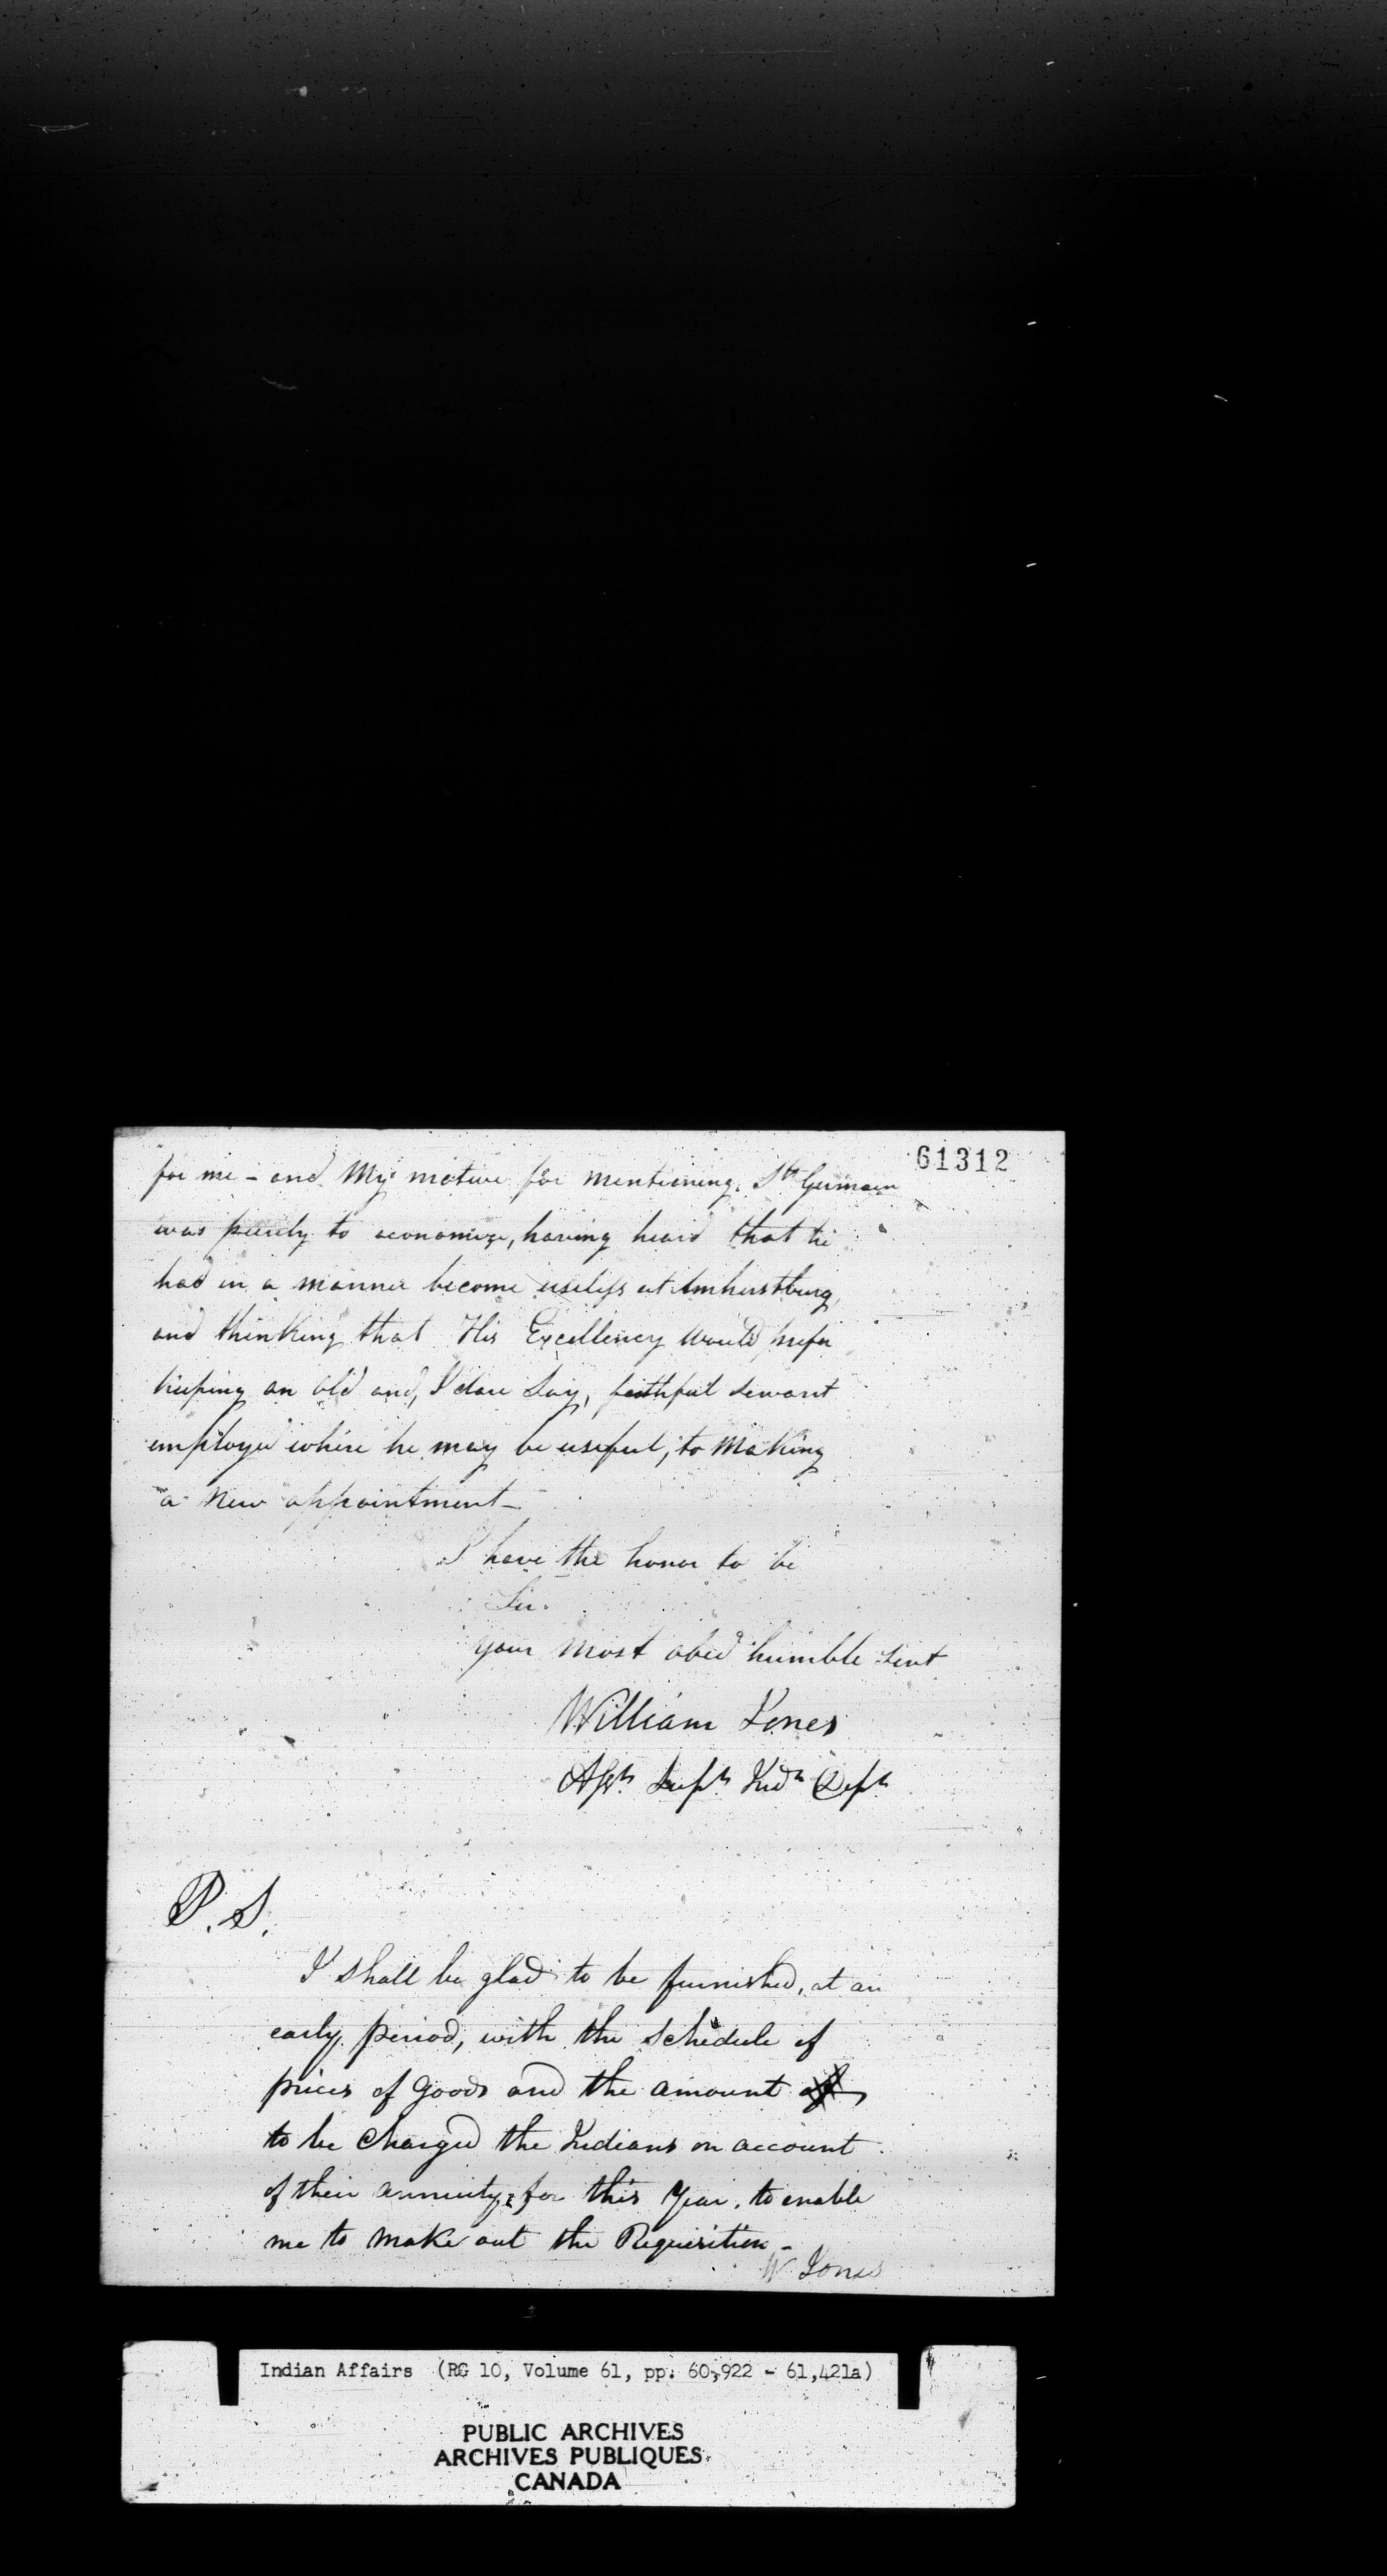 61312
for me - and My motive for mentioning St Germain
was purely to economize, having heard that he
had in a manner become useless at Amherstburg,
and thinking that His Excellency would prefer
keeping an old and, I dare Say, faithful servant
employed where he may be useful, to Making
a New appointment -
I have the honor to be
Sir.
your most obed humble Servt
William Jones
Asst. Supt. Indn Dept
P.S.
I shall be glad to be furnished, at an
early period, with the schedule of
prices of Goods and the amount of
to be Charged the Indians on account
of their annuity for this Year, to enable
me to make out the Requisition -
W Jones
Indian Affairs (RG 10, Volume 61, pp. 60,922 - 61,421a)
PUBLIC ARCHIVES
ARCHIVES PUBLIQUES
CANADA